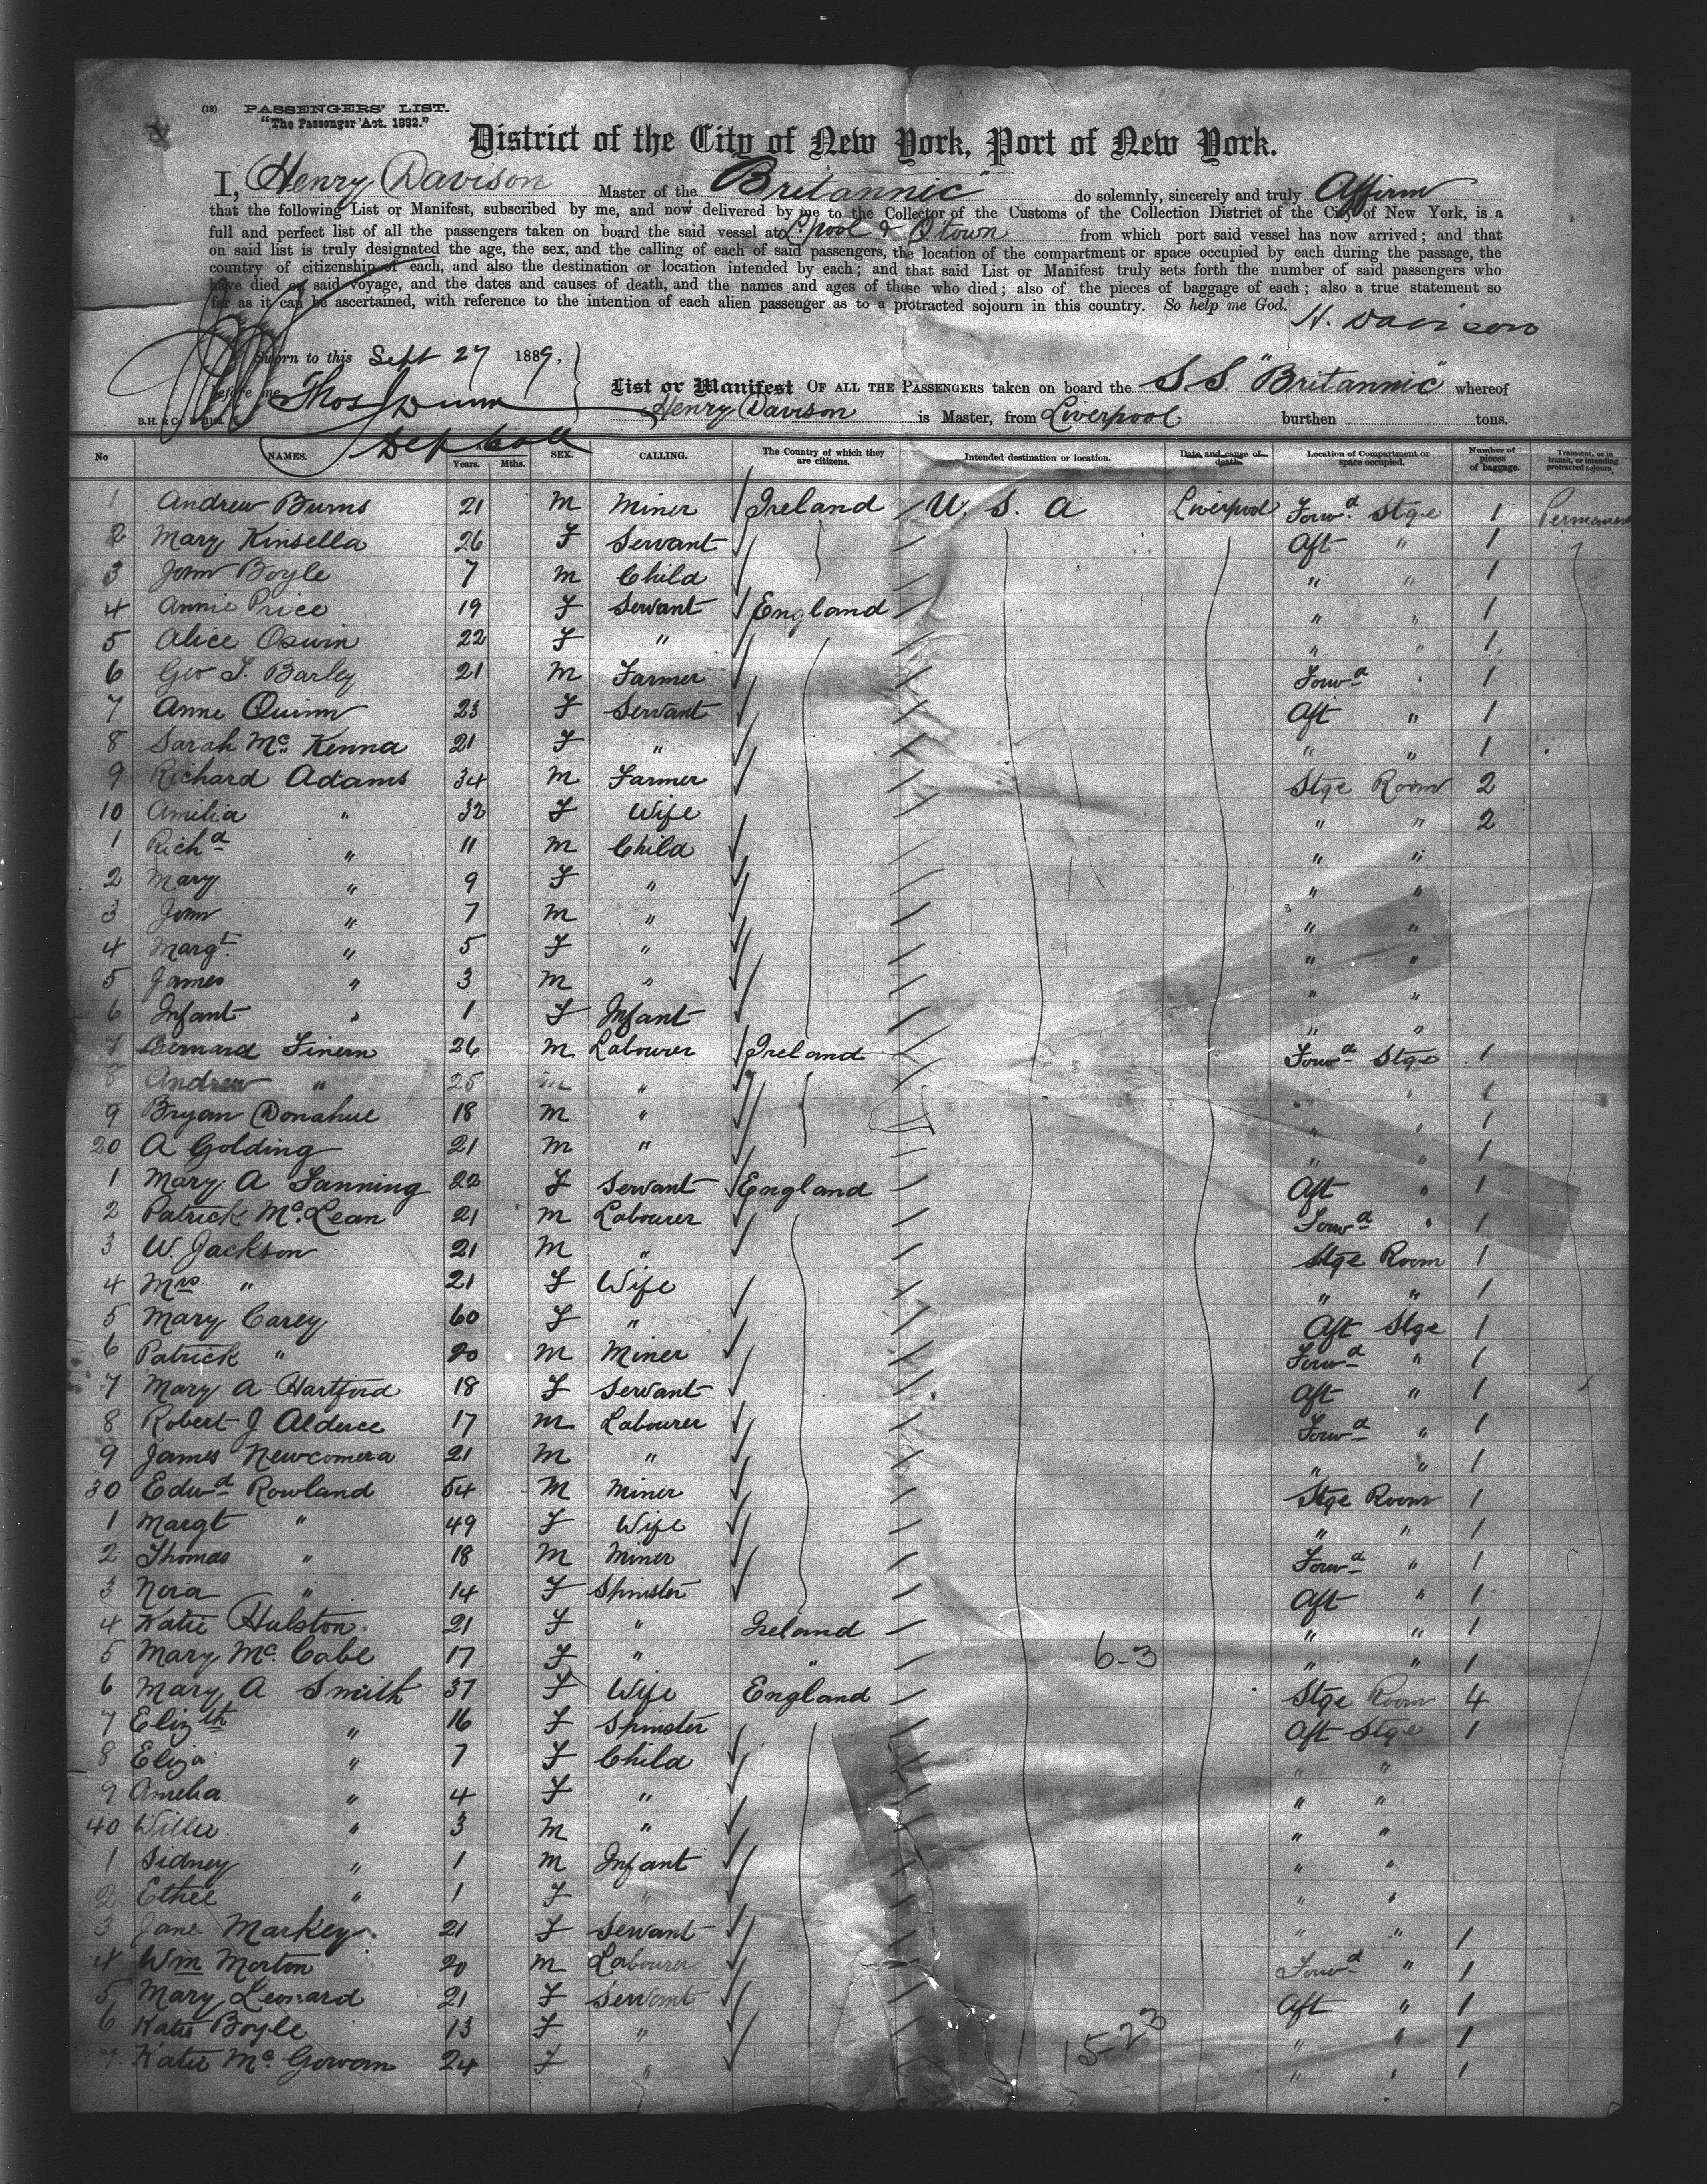 (18) PASSENGERS' LIST.
"The Passenger Act. 1882."
District of the City of New York, Port of New York.
I, Henry Davison Master of the "Britannic" do solemnly, sincerely and truly Affirm
that the following List or Manifest, subscribed by me, and now delivered by me to the Collector of the Customs of the Collection District of the City of New York, is a
full and perfect list of all the passengers taken on board the said vessel at L'pool & Qtown from which port said vessel has now arrived; and that
on said list is truly designated the age, the sex, and the calling of each of said passengers, the location of the compartment or space occupied by each during the passage, the
country of citizenship of each, and also the destination or location intended by each; and that said List or Manifest truly sets forth the number of said passengers who
have died on said voyage, and the dates and causes of death, and the names and ages of those who died; also of the pieces of baggage of each; also a true statement so
far as it can be ascertained, with reference to the intention of each alien passenger as to a protracted sojourn in this country. So help me God.
H. Davison
Sworn to this Sept 27 1889,
before me Thos Dunn
Dep Coll
List or Manifest OF ALL THE PASSENGERS taken on board the S.S. "Britannic" whereof
Henry Davison is Master, from Liverpool burthen tons.
No NAMES. Years. Mths. SEX. CALLING. The Country of which they are citizens. Intended destination or location. Date and cause of death. Location of Compartment or space occupied. Number of pieces of baggage. Transient, or in transit, or intending protracted sojourn.
1 Andrew Burns 21 M Miner Ireland U. S. A Liverpool Forwd Stge 1 Permanent
2 Mary Kinsella 26 F Servant Aft " 1
3 John Boyle 7 M Child " " 1
4 Annie Price 19 F Servant England " " 1
5 Alice Oswin 22 F " " " 1
6 Geo T. Barley 21 M Farmer Forwd " 1
7 Anne Quinn 23 F Servant Aft " 1
8 Sarah Mc Kenna 21 F " " " 1
9 Richard Adams 34 M Farmer Stge Room 2
10 Amilia " 32 F Wife " " 2
1 Richd " 11 M Child " "
2 Mary " 9 F " " "
3 John " 7 M " " "
4 Margt. " 5 F " " "
5 James " 3 M " " "
6 Infant " 1 F Infant " "
7 Bernard Finern 26 M Labourer Ireland Forwd Stge 1
8 Andrew " 25 M " " " 1
9 Bryan Donahue 18 M " " " 1
20 A Golding 21 M " " " 1
1 Mary A Fanning 22 F Servant England Aft " 1
2 Patrick Mc Lean 21 M Labourer Forwd " 1
3 W. Jackson 21 M " Stge Room 1
4 Mrs " 21 F Wife " " 1
5 Mary Carey 60 F " Aft Stge 1
6 Patrick " 20 M Miner Forwd " 1
7 Mary A Hartford 18 F Servant Aft " 1
8 Robert J Alderce 17 M Labourer Forwd " 1
9 James Newcomera 21 M " " " 1
30 Edwd Rowland 54 M Miner Stge Room 1
1 Margt " 49 F Wife " " 1
2 Thomas " 18 M Miner Forwd " 1
3 Nora " 14 F Spinster Aft " 1
4 Katie Hulston 21 F " Ireland " " 1
5 Mary Mc. Cabe 17 F " " 6-3 " " 1
6 Mary A Smith 37 F Wife England Stge Room 4
7 Elizth " 16 F Spinster Aft Stge 1
8 Eliza " 7 F Child " "
9 Amelia " 4 F " " "
40 Willie " 3 M " " "
1 Sidney " 1 M Infant " "
2 Ethel " 1 F " " "
3 Jane Markey 21 F Servant " " 1
4 Wm Morton 20 M Labourer Forwd " 1
5 Mary Leonard 21 F Servant Aft " 1
6 Katie Boyle 13 F " 15-23 " " 1
7 Katie Mc. Gowan 24 F " " " 1